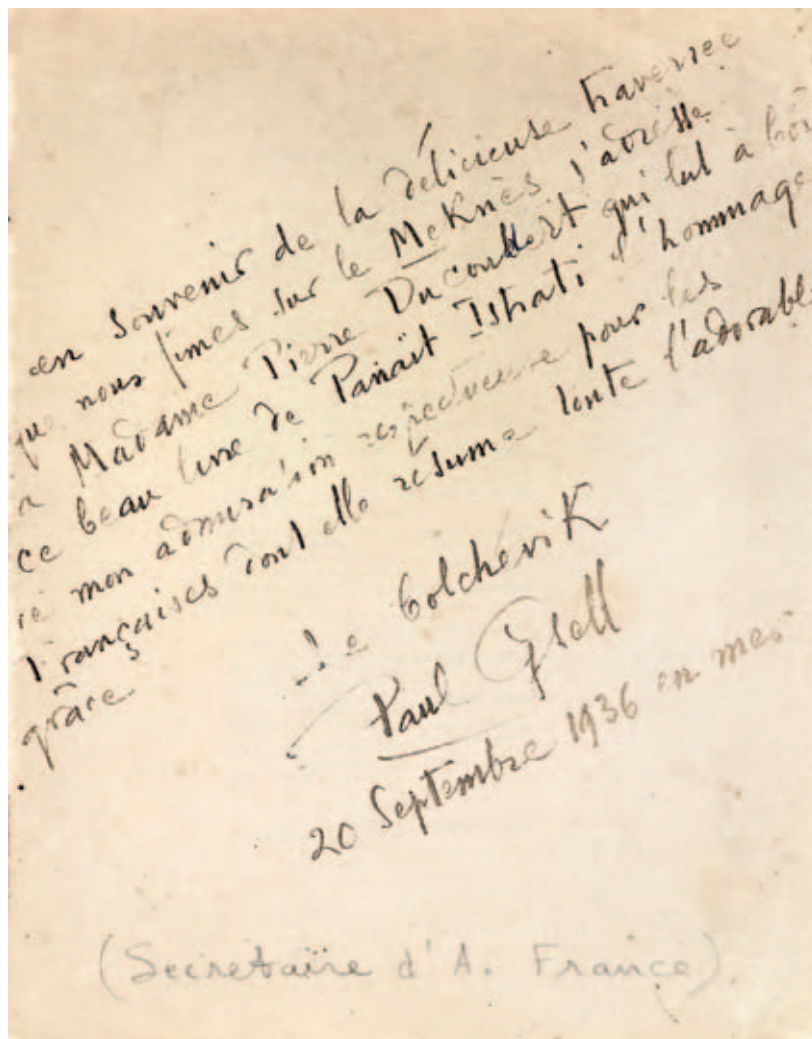 en souvenir de la délicieuse traversée
que nous fîmes sur le Meknès j'adresse
a Madame Pierre Ducoubert qui lut à bord
ce beau livre de Panaït Istrati l'hommage
de mon admiration respectueuse pour les
Françaises dont elle résume toute l'adorable
grâce
Le bolchevik
Paul Gsell
20 Septembre 1936 en mer
(Secretaïre d'A. France)